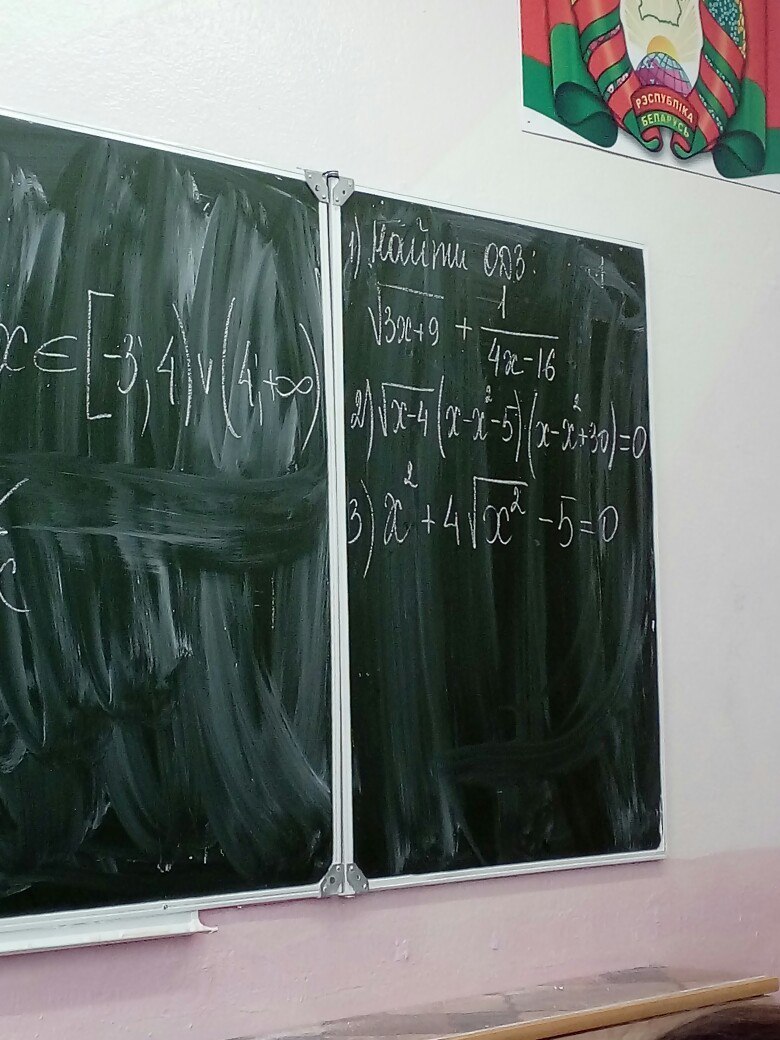 РЭСПУБЛІКА
БЕЛАРУСЬ
x ∈ [-3; 4) ∨ (4; +∞)
1) Найти ОДЗ:
√(3x+9) + 1/(4x-16)
2) √(x-4) (x-x²-5)·(x-x²+30)=0
3) x² + 4√(x²) - 5 = 0